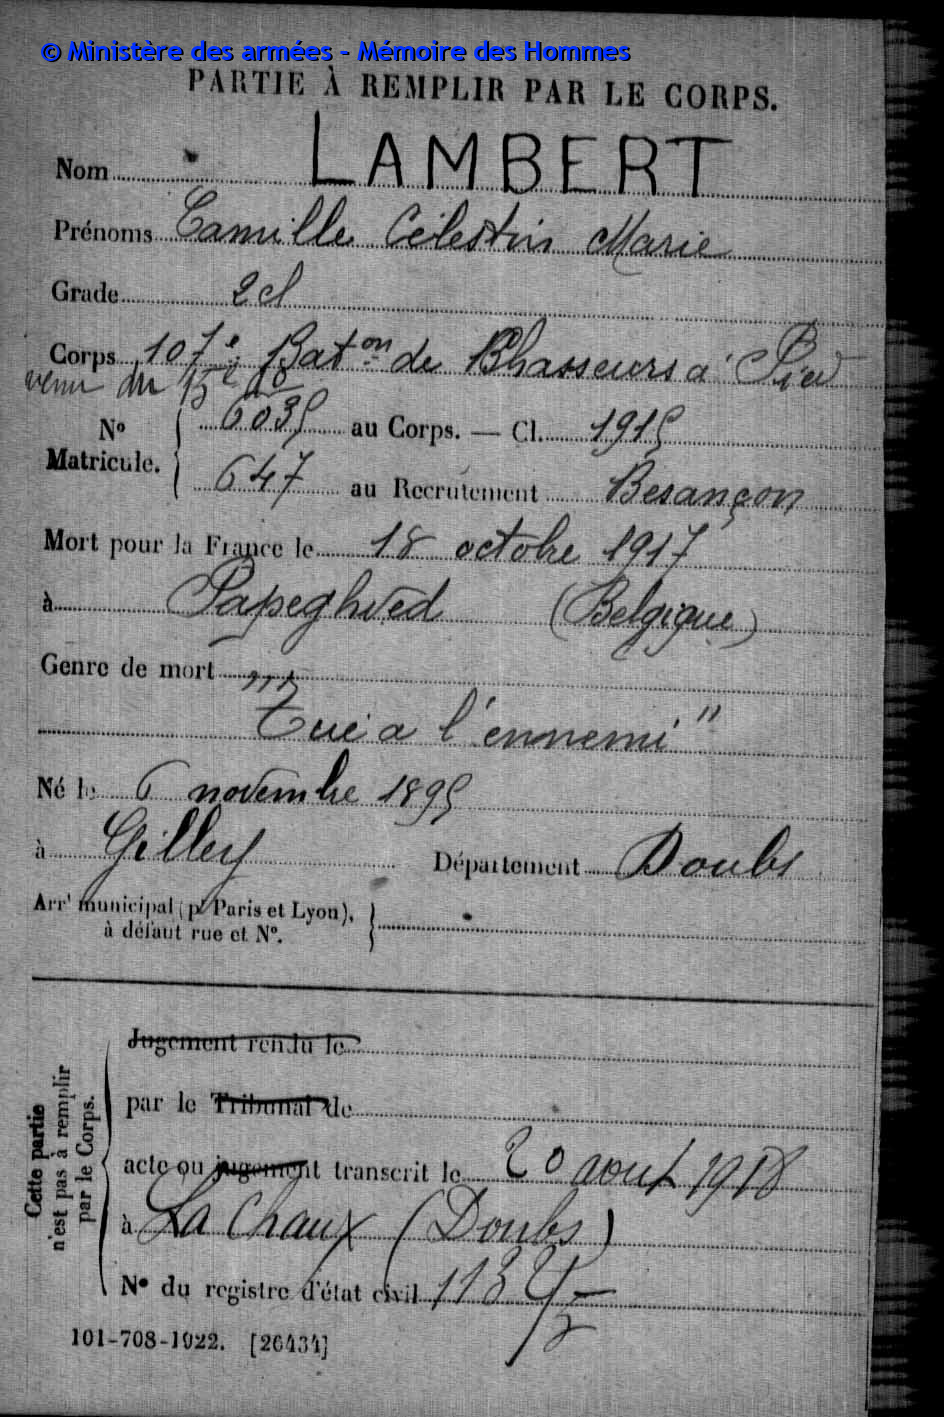 © Ministère des armées - Mémoire des Hommes
PARTIE À REMPLIR PAR LE CORPS.
Nom LAMBERT
Prénoms Camille Célestin Marie
Grade 2 cl
Corps 107e Baton de Chasseurs à Pied
venu du 15e
No Matricule. 6035 au Corps. — Cl. 1915
647 au Recrutement Besançon
Mort pour la France le 18 octobre 1917
à (Belgique)
Genre de mort
"Tué a l'ennemi"
Né le 6 novembre 1895
à Gilley Département Doubs
Arrt municipal (pr Paris et Lyon),
à défaut rue et N°.
Cette partie
n'est pas à remplir
par le Corps.
Jugement rendu le
par le Tribunal de
acte ou jugement transcrit le 20 aout 1918
à La Chaux (Doubs)
N° du registre d'état civil
101-708-1922. [26434]